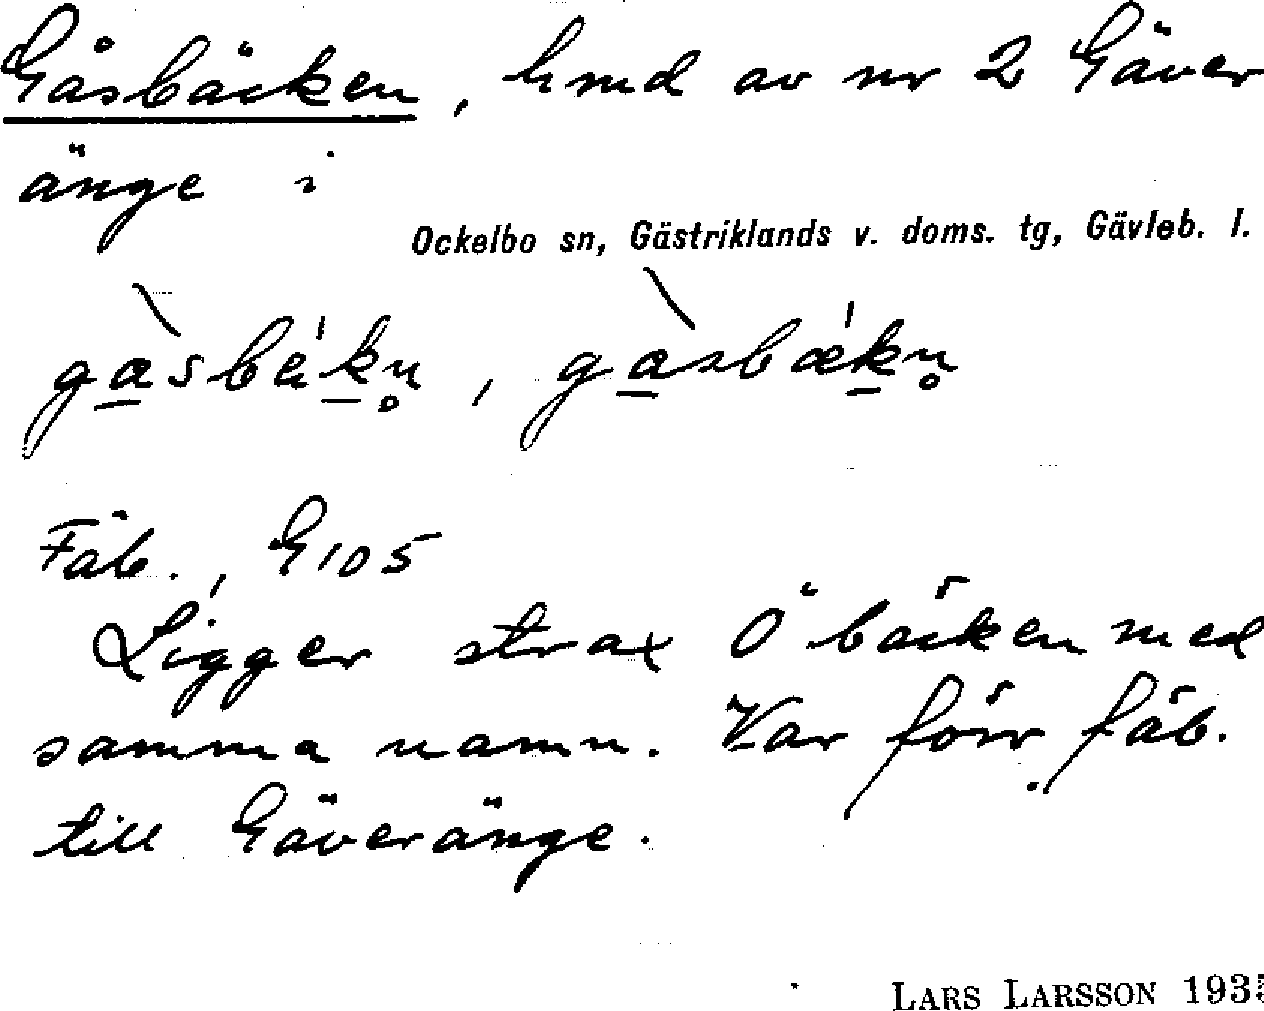 Gåsbäcken, hmd av nr 2 Gäver
änge i
Ockelbo sn, Gästriklands v. doms. tg, Gävleb. l.
Fäb., G105
Ligger strax Ö bäcken med
samma namn. Var förr fäb.
till Gäveränge.
LARS LARSSON 1935